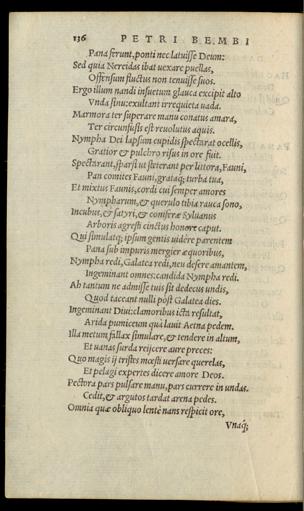 136 PETRI BEMBI
Pana ferunt, ponti nec latuisse Deum:
Sed quia Nereidas ibat uexare puellas,
Offensum fluctus non tenuisse suos.
Ergo illum nandi insuetum glauca excipit alto
Vnda sinu: exultant irrequieta uada.
Marmora ter superare manu conatus amara,
Ter circunfusis est reuolutus aquis.
Nympha Dei lapsum cupidis spectarat ocellis,
Gratior & pulchro risus in ore fuit.
Spectarant, sparsi ut steterant per littora, Fauni,
Pan comites Fauni, grataq; turba tua,
Et mixtus Faunis, cordi cui semper amores
Nympharum, & querulo tibia rauca sono,
Incubus, & satyri, & coniferæ Syluanus
Arboris agresti cinctus honore caput.
Qui simulatq; ipsum gentis uidere parentem
Pana sub impuris mergier æquoribus,
Nympha redi, Galatea redi, neu desere amantem,
Ingeminant omnes: candida Nympha redi.
Ah tantum ne admisse tuis sit dedecus undis,
Quod taceant nulli post Galatea dies.
Ingeminant Diui: clamoribus icta resultat,
Arida pumiceum qua lauit Aetna pedem.
Illa metum fallax simulare, & tendere in altum,
Et uanas surda reijcere aure preces:
Quo magis ij tristes mœsti uersare querelas,
Et pelagi expertes dicere amore Deos.
Pectora pars pulsare manu, pars currere in undas.
Cedit, & argutos tardat arena pedes.
Omnia quæ obliquo lente nans respicit ore,
Vnaq;